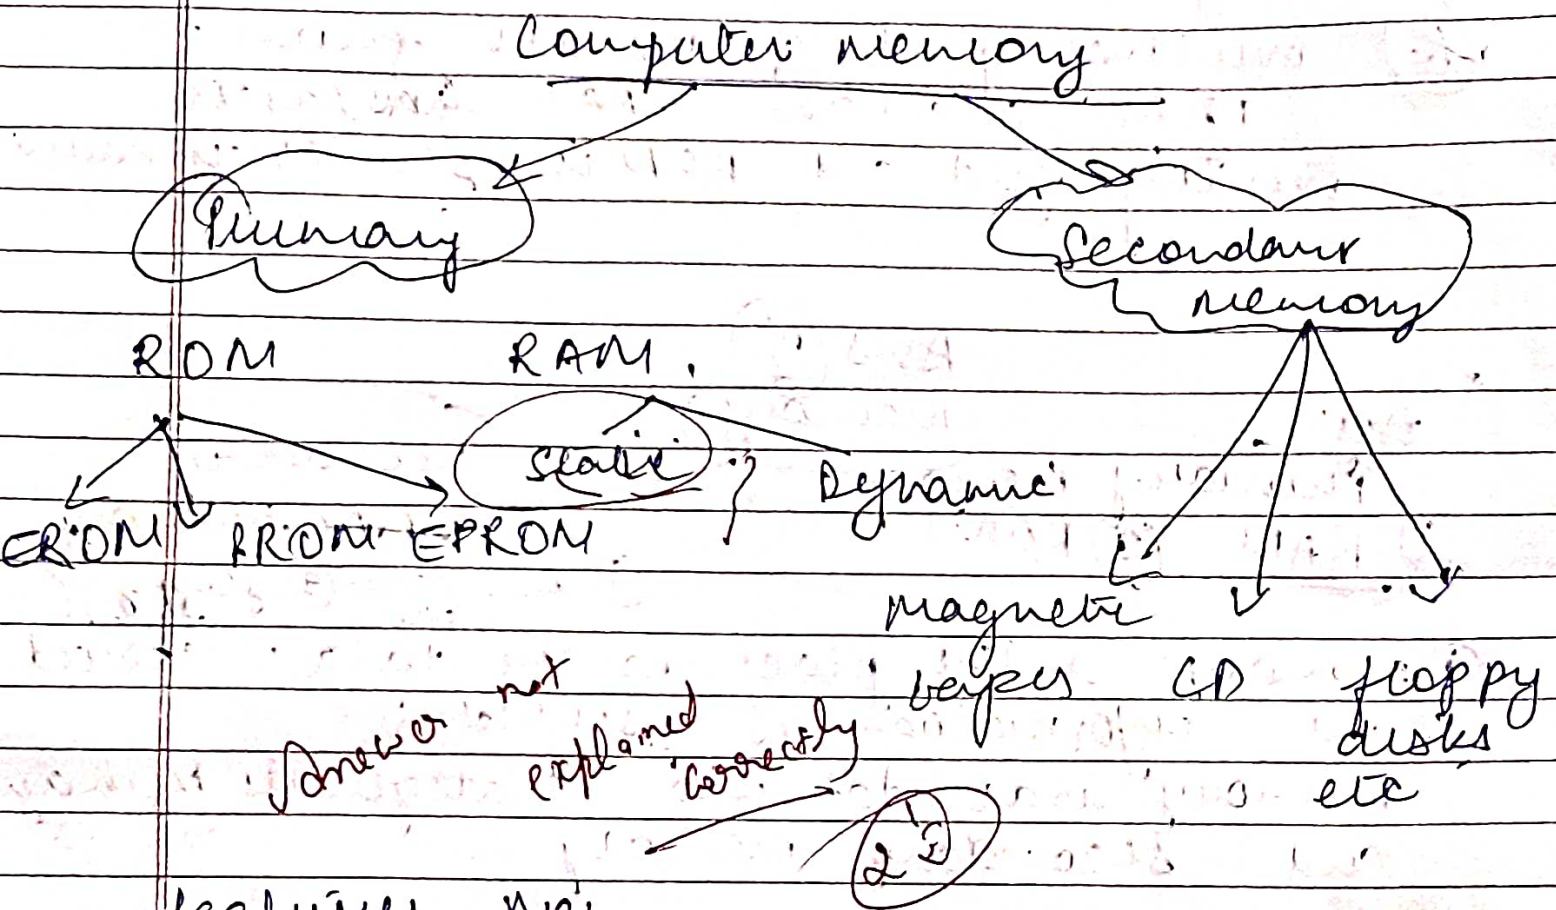 Computer memory
Primary
Secondary
memory
ROM RAM.
Static Dynamic
EROM PROM EPROM
magnetic
tapes CD floppy
disks
etc
Answer not
explained
correctly
2 1/2